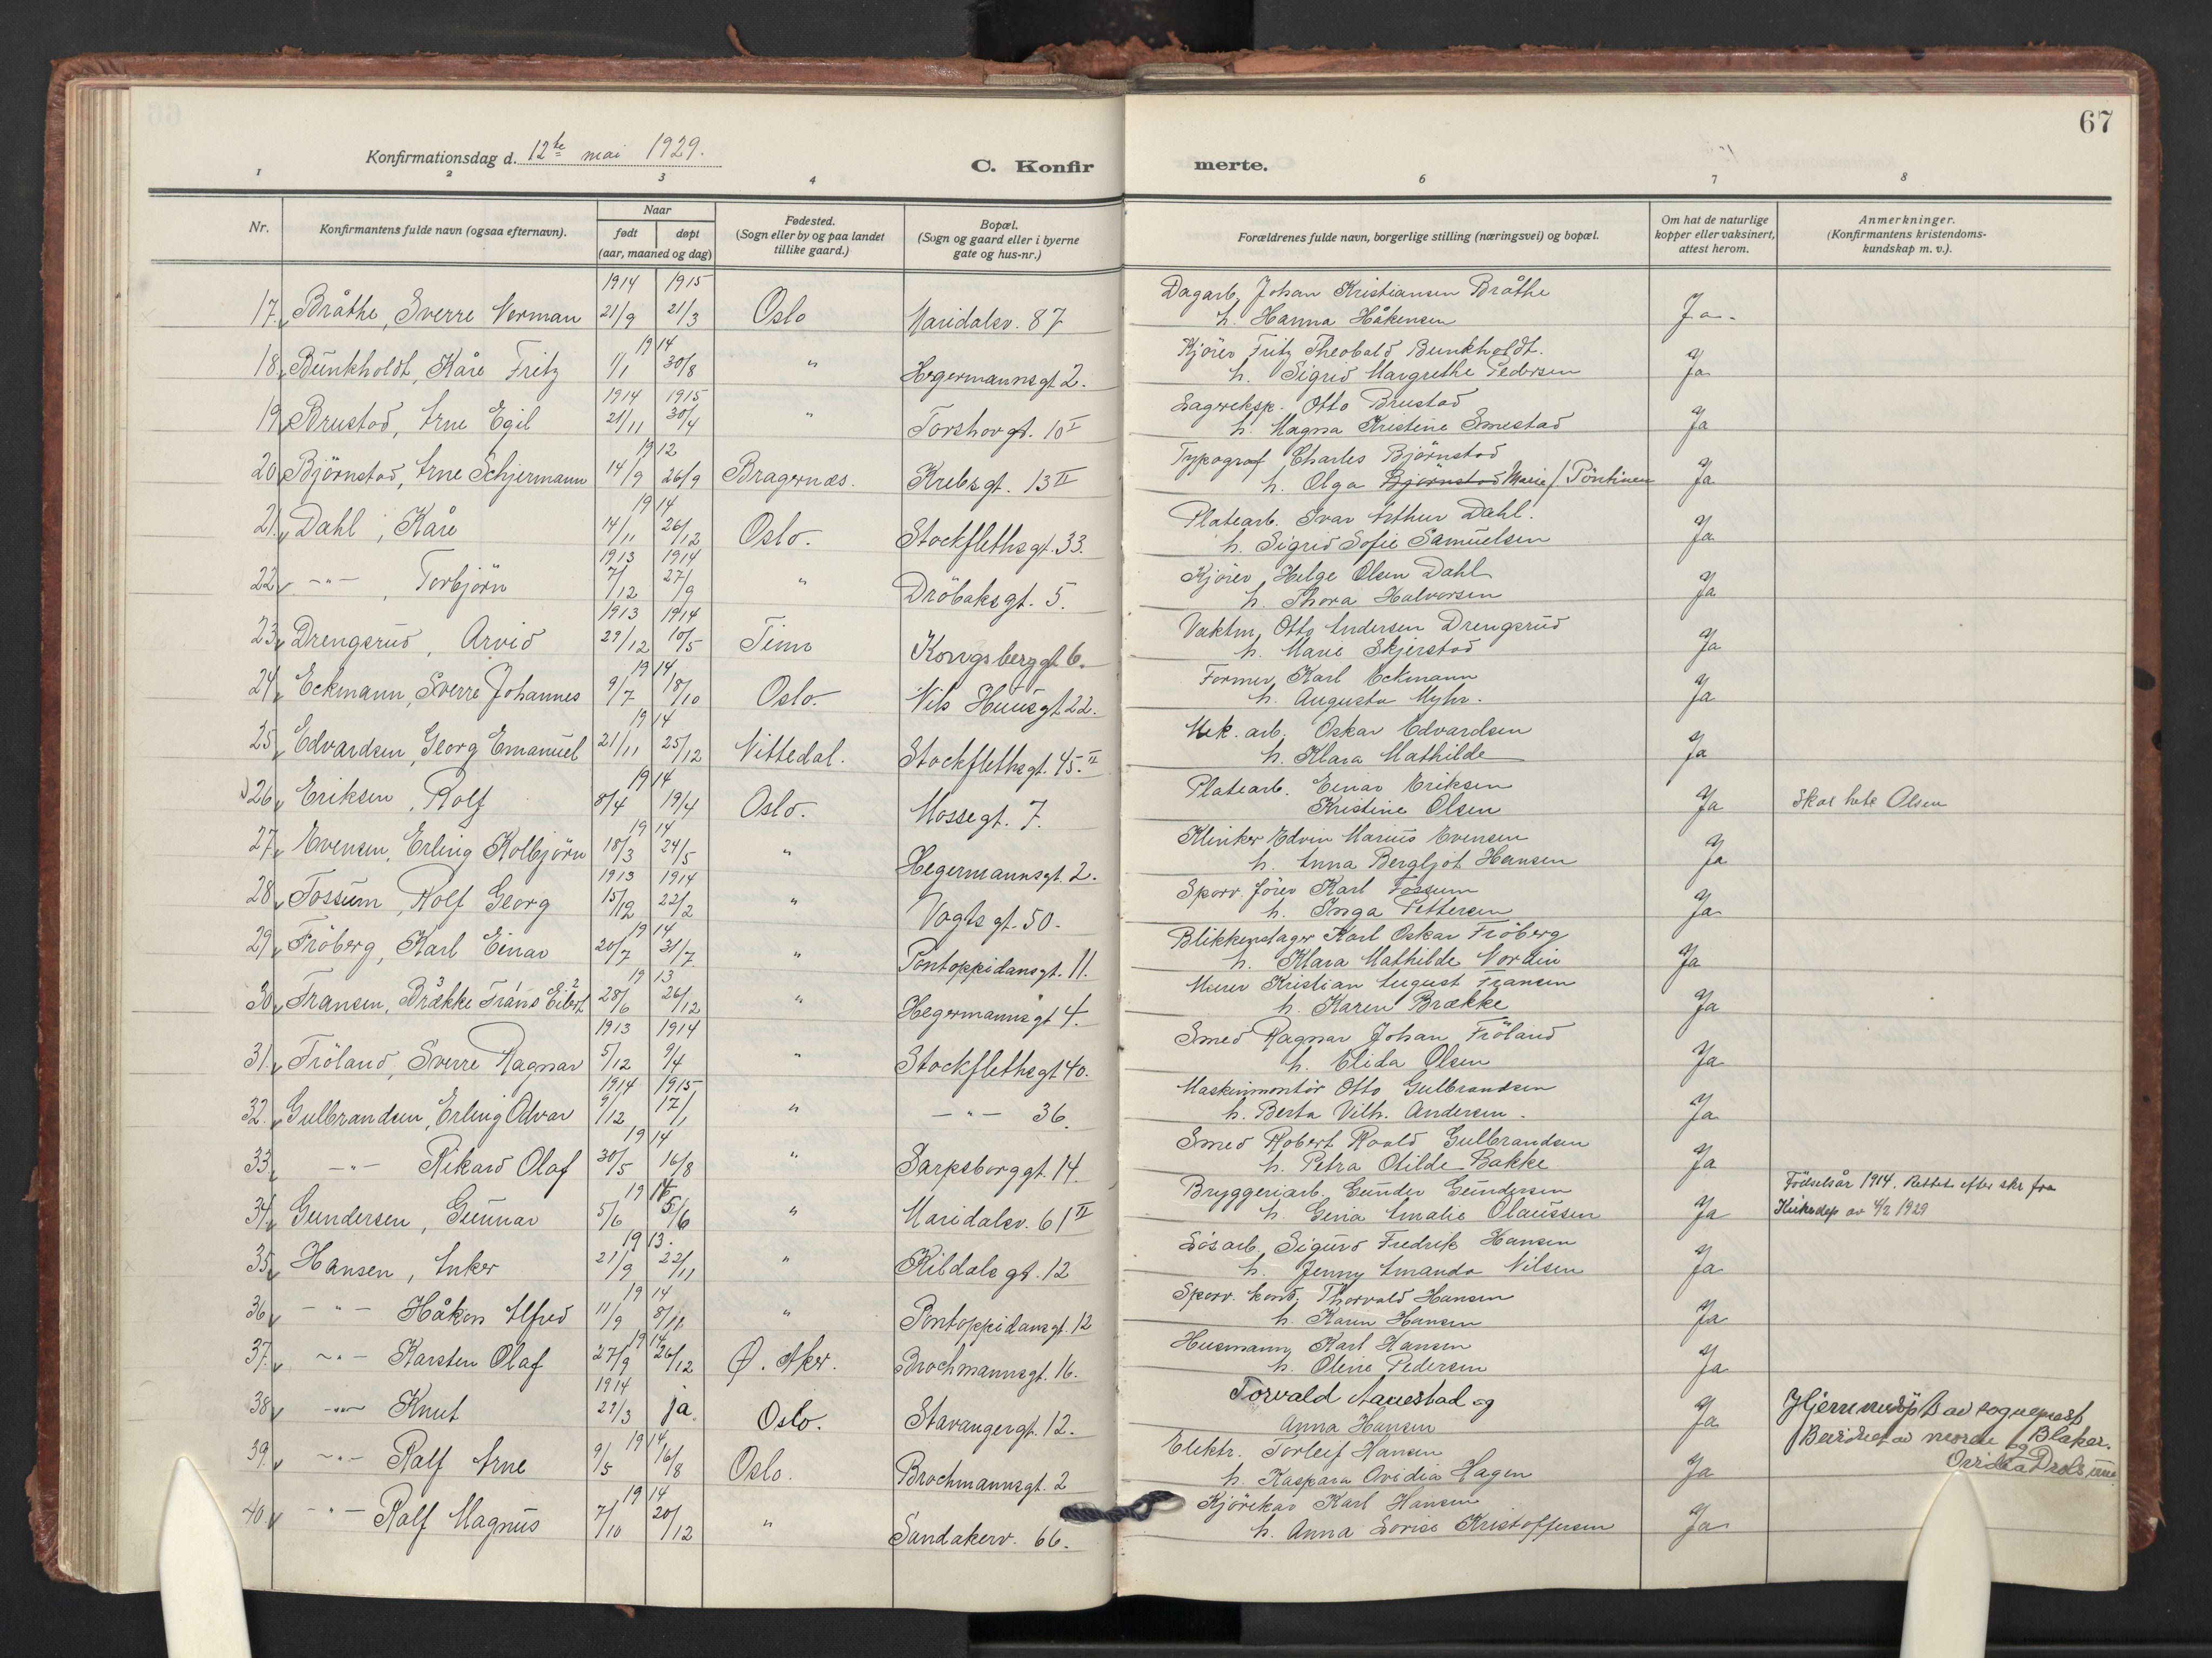 67
Konfirmationsdag d. 12te mai 1929.
C. Konfir merte.
1 2 3 4 6 7 8
Nr.
Konfirmantens fulde navn (ogsaa efternavn).
Naar
født døpt
(aar, maaned og dag)
Fødested.
(Sogn eller by og paa landet
tillike gaard.)
Bopæl.
(Sogn og gaard eller i byerne
gate og hus-nr.)
Forældrenes fulde navn, borgerlige stilling (næringsvei) og bopæl.
Om hat de naturlige
kopper eller vaksinert,
attest herom.
Anmerkninger.
(Konfirmantens kristendoms-
kundskap m. v.).
1914 1915 Dagarb. Johan Kristiansen Bråthe
17. Bråthe, Sverre Norman 21/9 21/3 Oslo Maridalsv. 87 h. Hanna Håkensen Ja.
1914 Kjörer Fritz Theobald Bunkholdt.
18. Bunkholdt, Kåre Fritz 1/1 30/8 " Hegermannsgt 2. h. Sigrid Margrethe Pedersen Ja
1914 1915 Lagereksp. Otto Brustad
19. Brustad, Arne Egil 21/11 30/4 " Torshovgt. 10 I h. Magna Kristine Smestad Ja
1912 Typograf Charles Björnstad
20. Björnstad, Arne Schjermann 14/9 26/9 Bragernæs. Krebsgt. 13 II h. Olga Björnstad Marie / Pöntinen Ja
1914 Platearb. Ivar Arthur Dahl.
21. Dahl, Kåre 14/11 26/12 Oslo. Stockflethsgt. 33. h. Sigrid Sofie Samuelsen Ja
1913 1914 Kjörer Helge Olsen Dahl
22. -"- , Torbjörn 7/12 27/9 " Dröbaksgt. 5. h. Thora Halvorsen Ja
1913 1914 Vaktm. Otto Andersen Drengsrud
23. Drengsrud, Arvid 29/12 10/5 Tinn Kongsberggt 6. h. Marie Skjerstad Ja
1914 Former Karl Eckmann
24. Eckmann, Sverre Johannes 9/7 18/10 Oslo. Nils Huusgt 22. h. Augusta Myhr. Ja
1914 Mek. arb. Oskar Edvardsen
25. Edvardsen, Georg Emanuel 21/11 25/12 Nittedal. Stockflethsgt. 45. II h. Klara Mathilde Ja
1914 Platearb. Einar Eriksen
26. Eriksen, Rolf 8/4 19/4 Oslo. Mossegt. 7. Kristine Olsen Ja Skal hete Olsen
1914 Klinker Edvin Marius Evensen
27. Evensen, Erling Kolbjörn 18/3 24/5 " Hegermannsgt. 2. h. Anna Bergljot Hansen Ja
1913 1914 Sporv. förer Karl Fossum
28. Fossum, Rolf Georg 15/12 22/2 " Vogts gt. 50. h. Inga Pettersen Ja
1914 Blikkenslager Karl Oskar Fröberg
29. Fröberg, Karl Einar 20/7 31/7 " Pontoppidansgt. 11. h. Klara Mathilde Nordin Ja
1913 Murer Kristian August Fransen
30. Fransen, Brække Frans Eilert 28/6 26/12 " Hegermannsgt 4. h. Karen Brække Ja
1913 1914 Smed Ragnar Johan Fröland
31. Fröland, Sverre Ragnar 5/12 9/4 " Stockflethsgt 40. h. Elida Olsen Ja
1914 1915 Maskinmontör Otto Gulbrandsen
32. Gulbrandsen, Erling Odvar 9/12 17/1 " -"- 36. h. Berta Vilh. Andersen. Ja
1914 Smed Robert Roald Gulbrandsen
33. -"- Rikard Olaf 30/5 16/8 " Sarpsborggt. 14. h. Petra Otilde Bakke Ja
Bryggeriarb. Gunder Gundersen Födselsår 1914. Rettet efter skr fra
34. Gundersen, Gunnar 5/6 5/6 " Maridalsv. 61 II h. Genia Amalie Olaussen Ja Kirkedep av 4/2 1929
1913. Lösarb. Sigurd Fredrik Hansen
35. Hansen, Anker 21/9 22/11 " Rildals gt. 12 h. Jenny Amanda Nilsen Ja
1914 Sporv. kond. Thorvald Hansen
36. -"- Håkon Alfred 11/9 8/11 " Pontoppidansgt. 12 h. Karen Hansen Ja
1914 Husmann Karl Hansen
37. -"- Karsten Olaf 27/9 26/12 Ø. Aker. Brochmannsgt. 16. h. Oline Pedersen Ja
1914 Torvald Aanestad og
38. -"- Knut 29/3 ja. Oslo. Stavangergt. 12. Anna Hansen Ja Hjemmedöpt av sogneprest
1914 Elektr. Torleif Hansen Bevidnet av moren og Blaker.
39. -"- Ralf Arne 9/5 16/8 Oslo. Brochmannsgt. 2 h. Kaspara Ovidia Hagen Ja
1914 Kjörekar Karl Hansen
40. -"- Ralf Magnus 7/10 20/12 " Sandakerv. 66. h. Anna Lovise Kristoffersen Ja